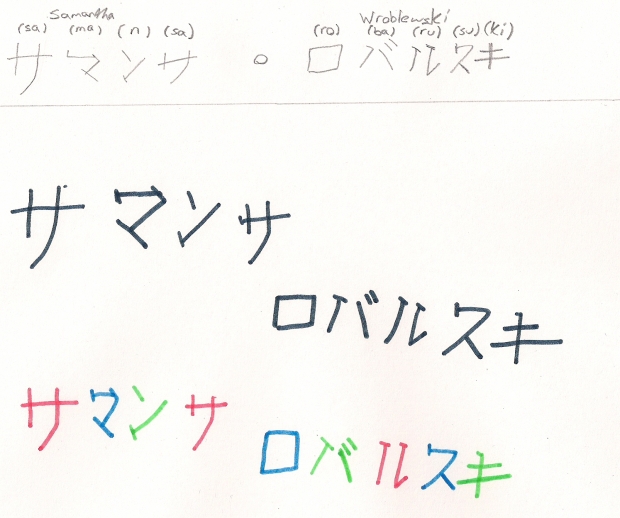 Samantha Wroblewski
(sa) (ma) (n) (sa) (ro) (ba) (ru) (su) (ki)
サマンサ。ロバルスキ
サマンサ
ロバルスキ
サマンサ
ロバルスキ